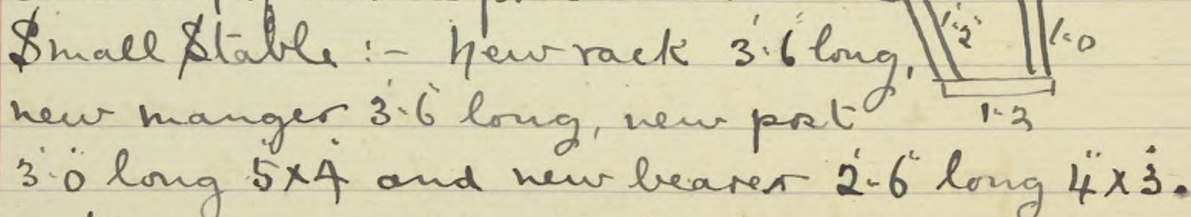 Small Stable :- New rack 3'.6" long,
1'.2"
1'.0
new manger 3'.6" long, new post
1'.3
3'.0" long 5"x4" and new bearer 2'.6" long 4"x3".